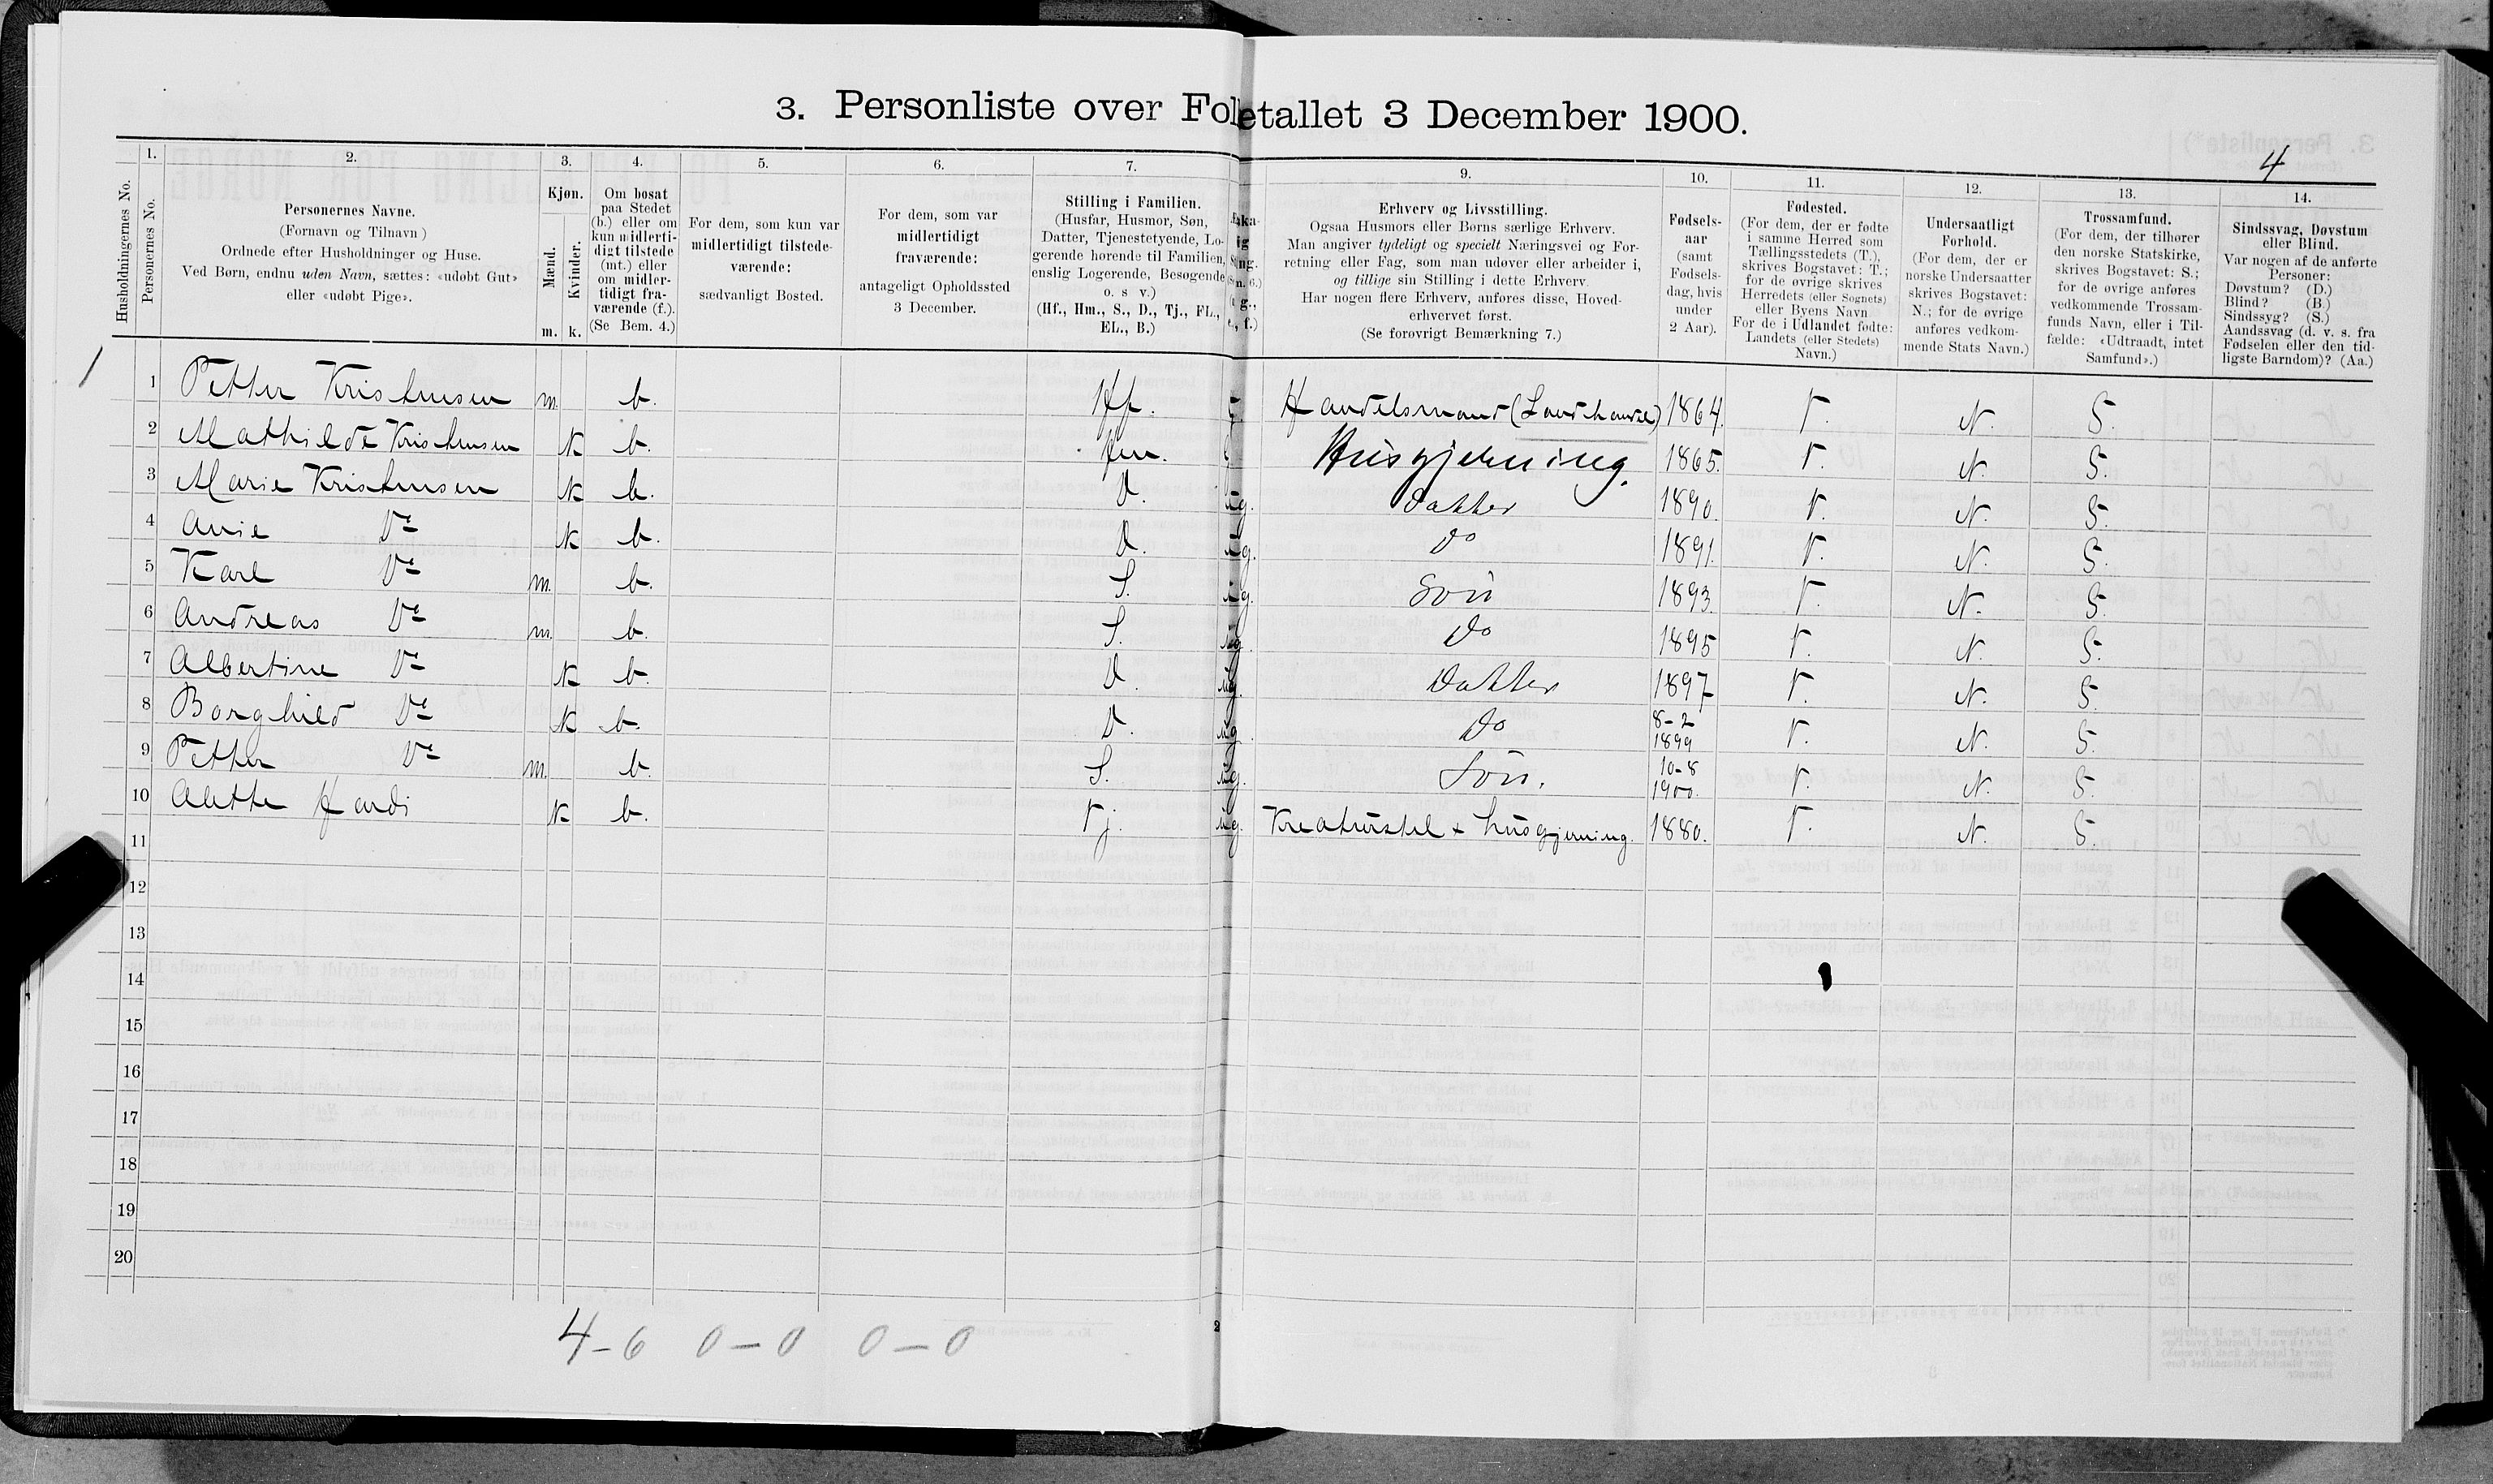 3. Personliste over Folketallet 3 December 1900.
4
Husholdningernes No.
1.
Personernes No.
2.
Personernes Navne.
(Fornavn og Tilnavn)
Ordnede efter Husholdninger og Huse.
Ved Børn, endnu uden Navn, sættes: «udøbt Gut»
eller «udøbt Pige».
3.
Kjøn.
Mænd.
Kvinder.
m. k.
4.
Om bosat
paa Stedet
(b.) eller om
kun midlerti-
digt tilstede
(mt.) eller
om midler-
tidigt fra-
værende (f.).
(Se Bem. 4.)
5.
For dem, som kun var
midlertidigt tilstede-
værende:
sædvanligt Bosted.
6.
For dem, som var
midlertidigt
fraværende:
antageligt Opholdssted
3 December.
7.
Stilling i Familien.
(Husfar, Husmor, Søn,
Datter, Tjenestetyende, Lo-
gerende hørende til Familien,
enslig Logerende, Besøgende
o. s v.)
(Hf., Hm., S., D., Tj., FL.,
EL., B.)
9.
Erhverv og Livsstilling.
Ogsaa Husmors eller Børns særlige Erhverv.
Man angiver tydeligt og specielt Næringsvei og For-
retning eller Fag, som man udøver eller arbeider i,
og tillige sin Stilling i dette Erhverv.
Har nogen flere Erhverv, anføres disse, Hoved-
erhvervet først.
(Se forøvrigt Bemærkning 7.)
10.
Fødsels-
aar
(samt
Fødsels-
dag, hvis
under
2 Aar).
11.
Fødested.
(For dem, der er fødte
i samme Herred som
Tællingsstedets (T.),
skrives Bogstavet: T.;
for de øvrige skrives
Herredets (eller Sognets)
eller Byens Navn
For de i Udlandet fødte:
Landets (eller Stedets)
Navn.)
12.
Undersaatligt
Forhold.
(For dem, der er
norske Undersaatter
skrives Bogstavet:
N.; for de øvrige
anføres vedkom-
mende Stats Navn.)
13.
Trossamfund.
(For dem, der tilhører
den norske Statskirke,
skrives Bogstavet: S.;
for de øvrige anføres
vedkommende Trossam-
funds Navn, eller i Til-
fælde: «Udtraadt, intet
Samfund».)
14.
Sindssvag, Døvstum
eller Blind.
Var nogen af de anførte
Personer:
Døvstum? (D.)
Blind? (B.)
Sindssyg? (S.)
Aandssvag (d. v. s. fra
Fødselen eller den tid-
ligste Barndom)? (Aa.)
1 1 Petter Kristensen m. b. Hf. Handelsmand (Landhandel) 1864. T. N. S.
2 Mathilde Kristensen k b. Hm. Husgjerning. 1865. T. N. S.
3 Marie Kristensen k b. D. ug. Datter 1890. T. N. S.
4 Anie Do k b. D. ug. Do 1891. T. N. S.
5 Karl Do m. b. S. ug. Søn 1893. T. N. S.
6 Andreas Do m. b. S. ug. Do 1895 T. N. S.
7 Albertine Do k b. D. ug. Datter 1897 T. N. S.
8 Borghild Do k b. D. ug. Do 8-2 1899 T. N. S.
9 Petter Do m. b. S. ug. Søn. 10-8 1900. T. N. S.
10 Alette Hardi k b. Tj. ug. Kreaturstel + husgjerning. 1880. T. N. S.
11
12
13
14
15
16
17
18
19
20
4-6 0-0 0-0
2